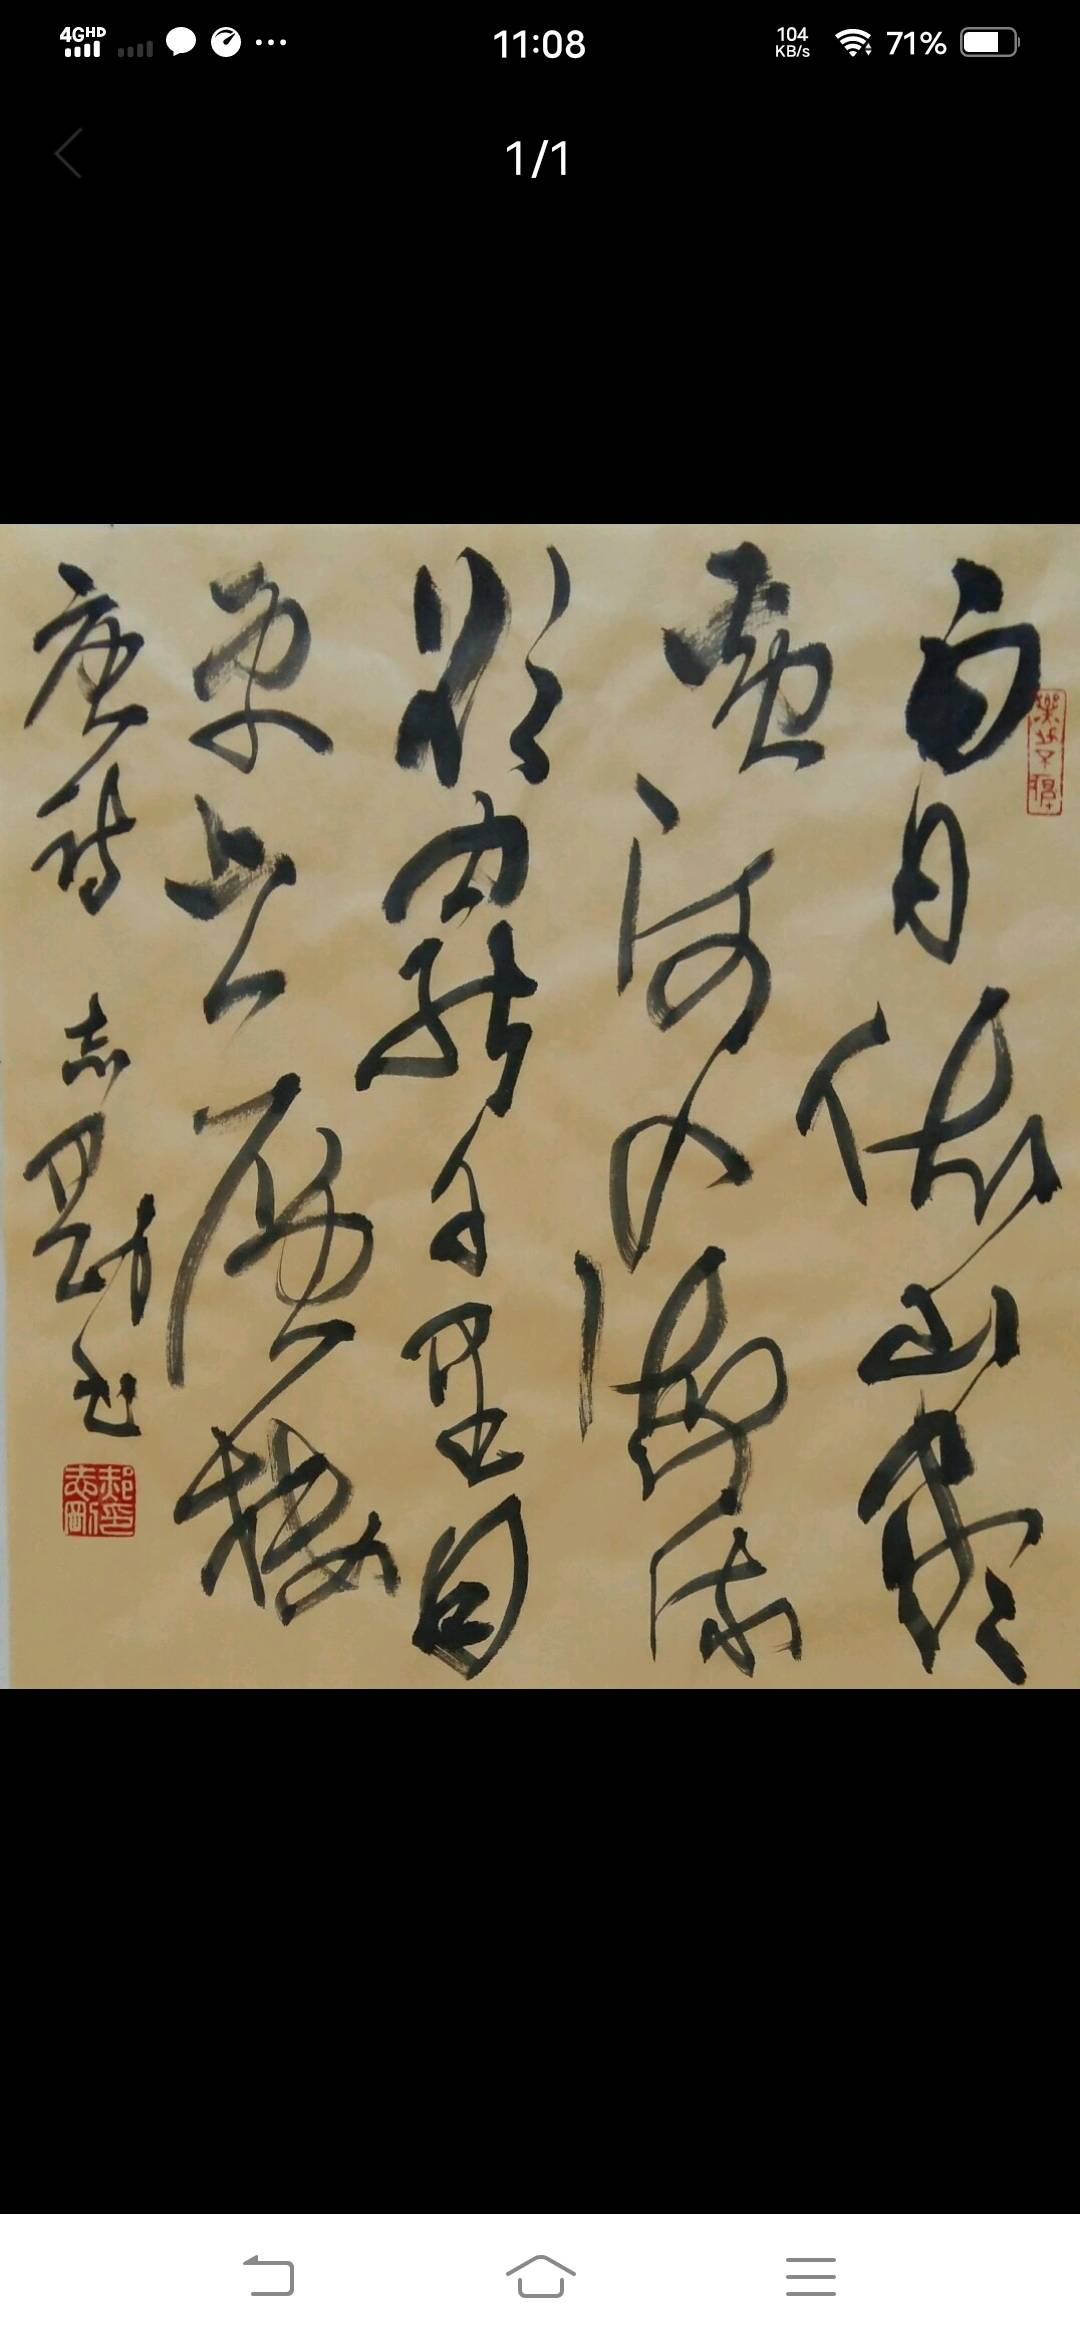 4GHD
11:08
104
KB/s
71%
1/1
白日依山尽
黄河入海流
欲穷千里目
更上一层楼
唐诗 志刚书
郝志刚印